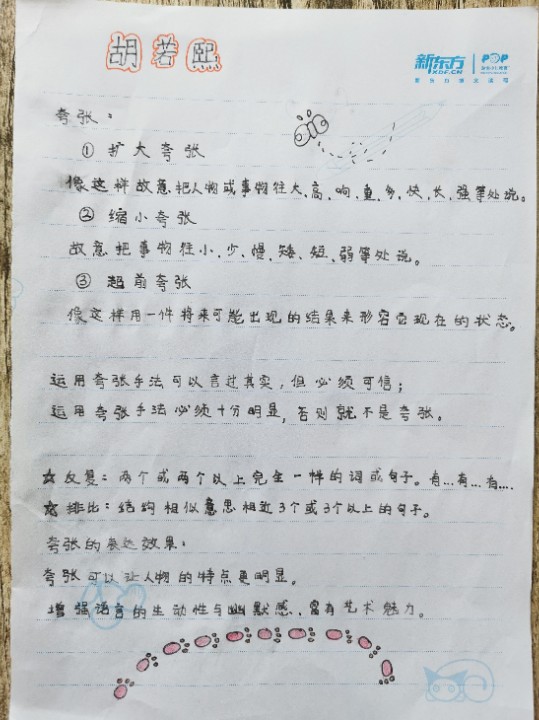 胡若熙
新东方
XDF.CN
POP
夸张:
① 扩大夸张
像这样故意把人物或事物往大、高、响、重、多、快、长、强等处说。
② 缩小夸张
故意把事物往小、少、慢、矮、短、弱等处说。
③ 超前夸张
像这样用一件将来可能出现的结果来形容它现在的状态。
运用夸张手法可以言过其实,但必须可信;
运用夸张手法必须十分明显,否则就不是夸张。
☆反复:两个或两个以上完全一样的词或句子。有...有...有....
☆排比:结构相似意思相近3个或3个以上的句子。
夸张的表达效果:
夸张可以让人物的特点更明显。
增强语言的生动性与幽默感,富有艺术魅力。